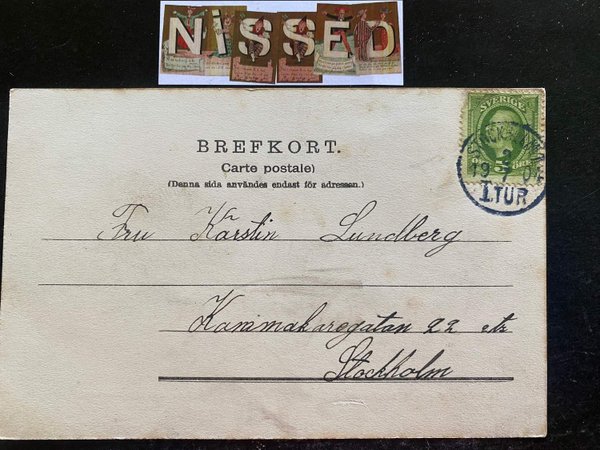 NiSSED
BREFKORT.
Carte postale)
(Denna sida användes endast för adressen.)
SVERIGE
5
2
19 7 0
1.TUR
Fru Karstin Lundberg
Kammakaregatan 22 
Stockholm